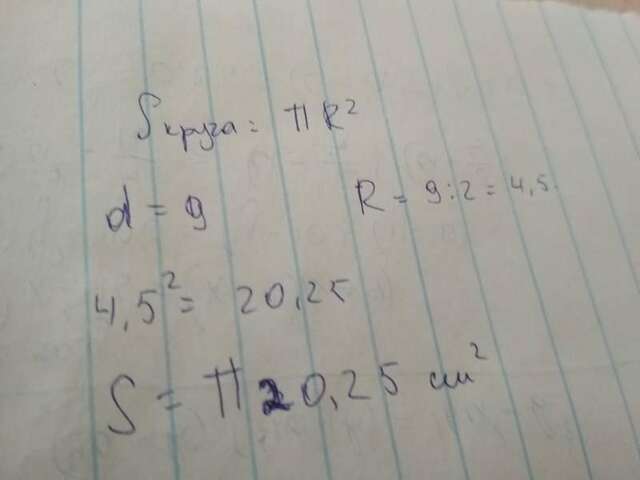 Sкруга = ПR²
d = 9 R = 9:2 = 4,5.
4,5² = 20,25
S = П20,25 см²